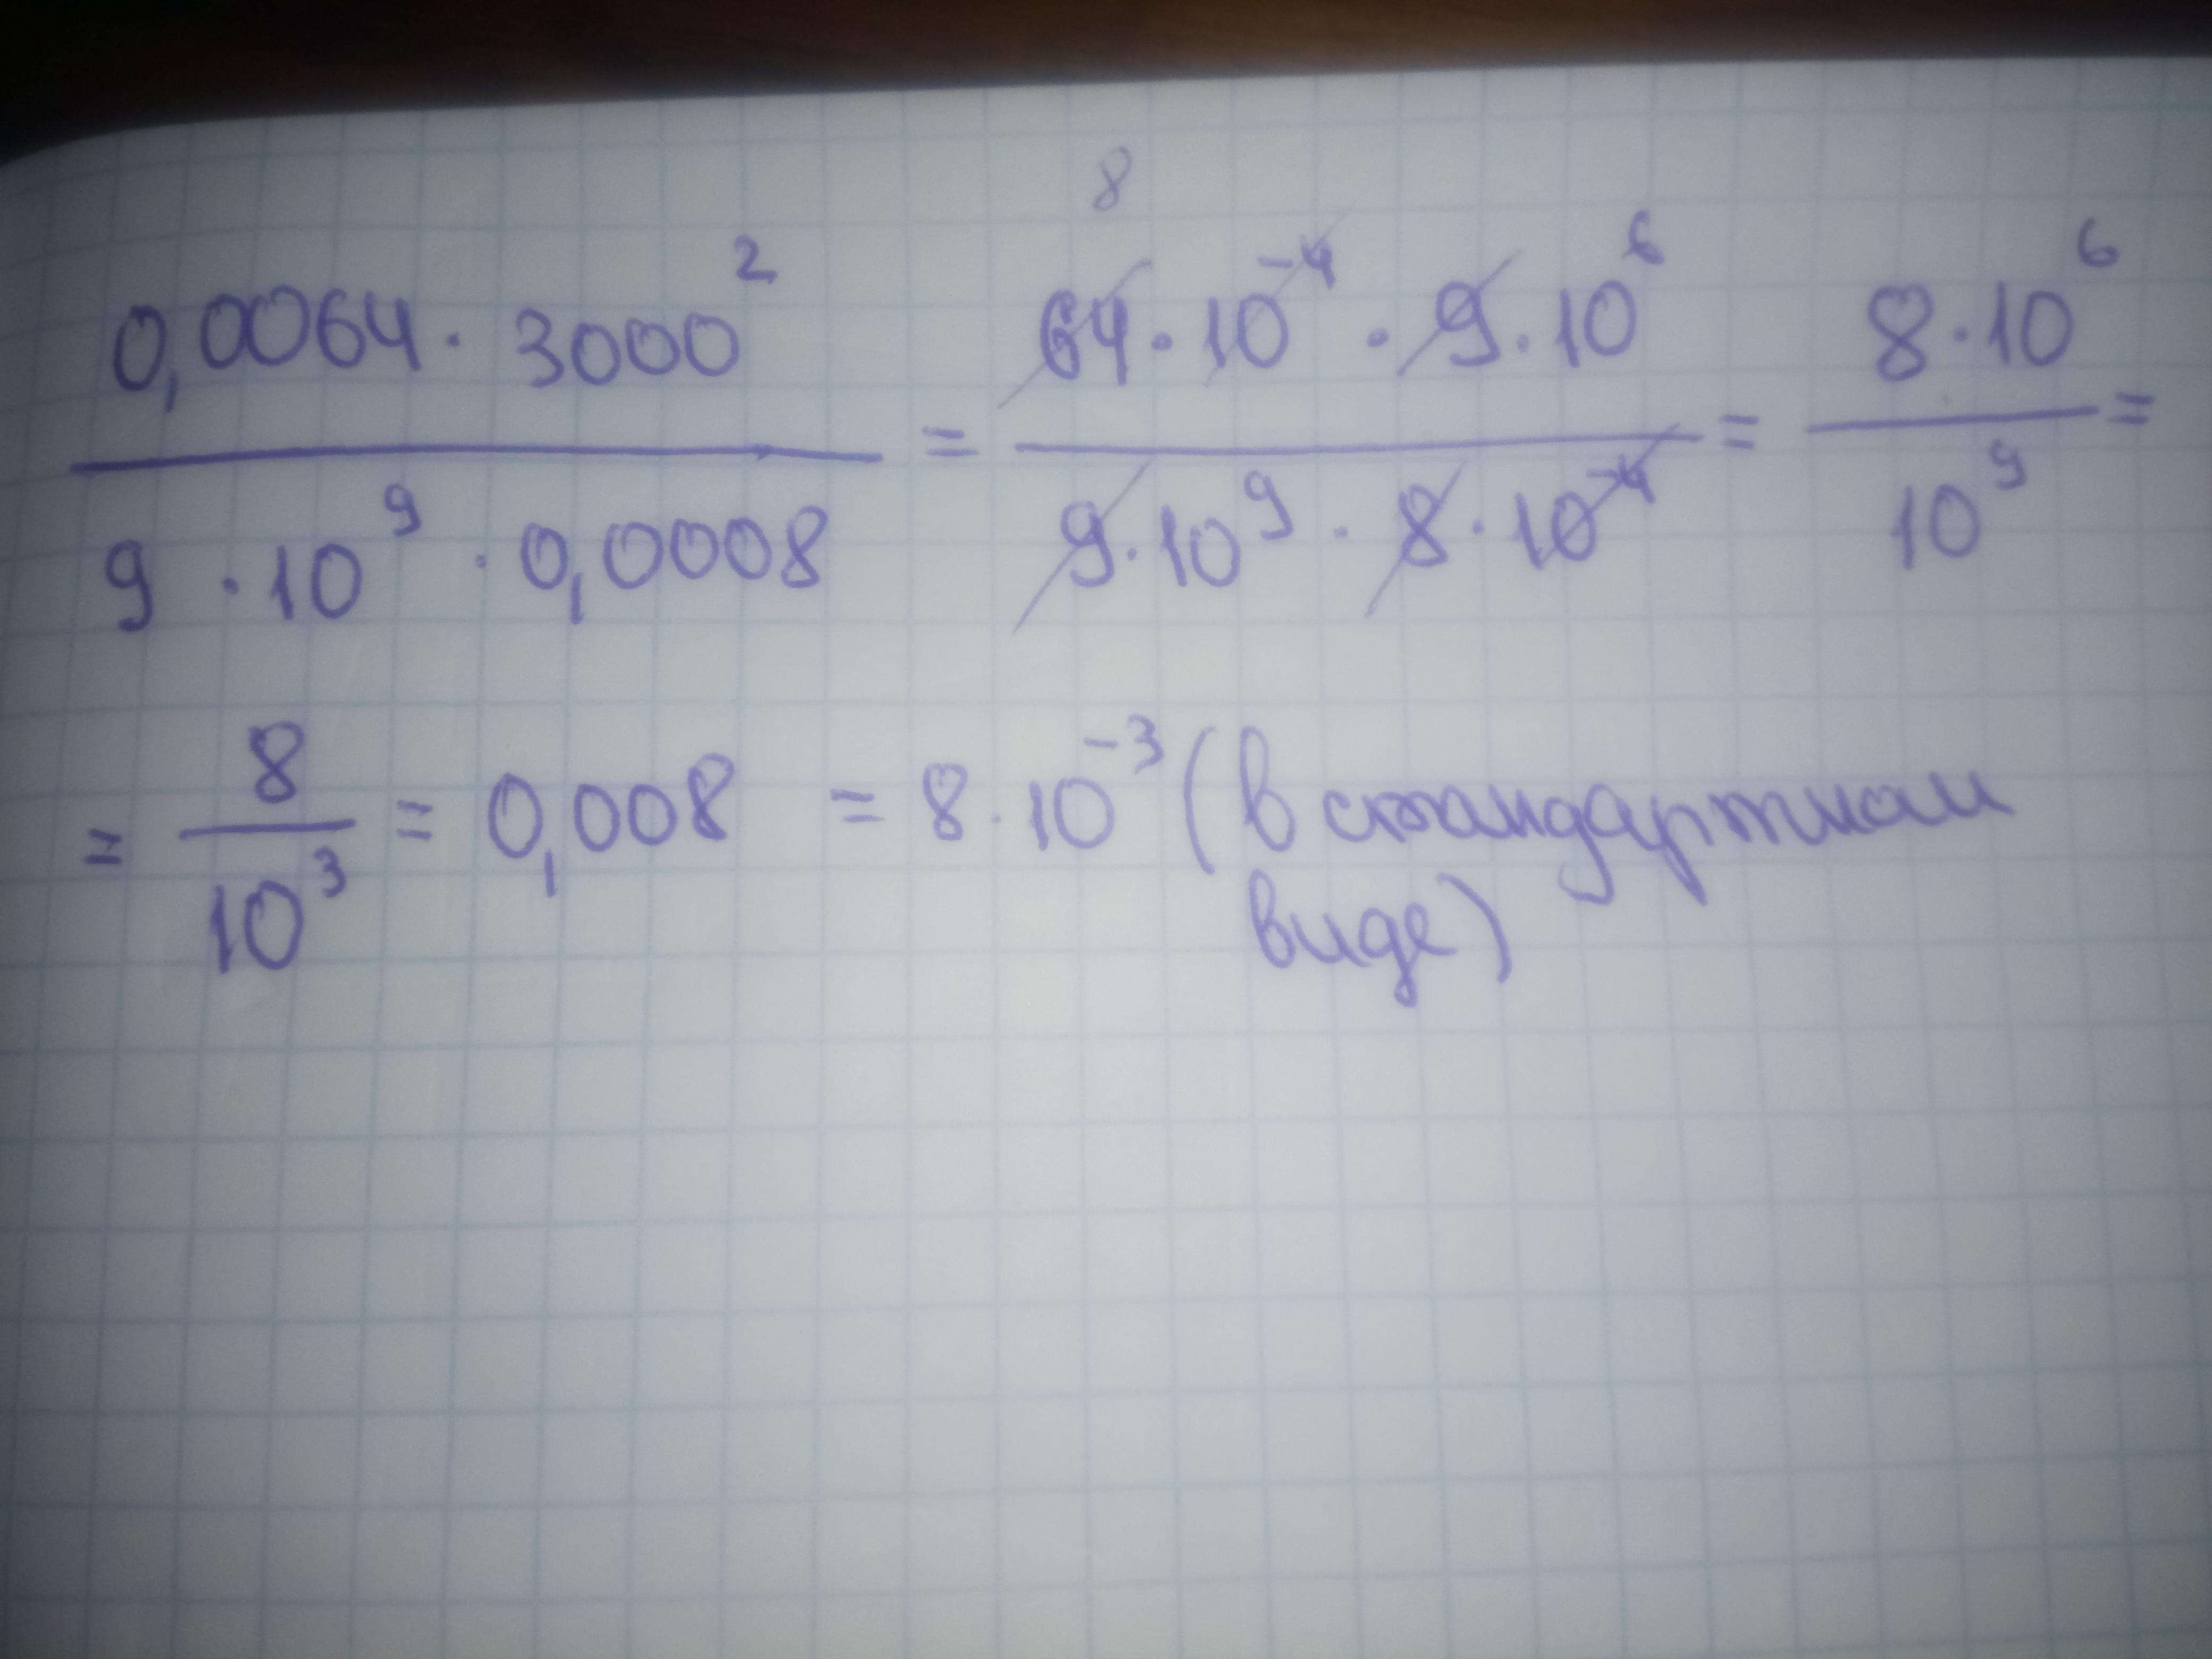 8
0,0064 · 3000² / 9 · 10⁹ · 0,0008 = 64 · 10⁻⁴ · 9 · 10⁶ / 9 · 10⁹ · 8 · 10⁻⁴ = 8 · 10⁶ / 10⁹ =
= 8 / 10³ = 0,008 = 8 · 10⁻³ (в стандартном
виде)